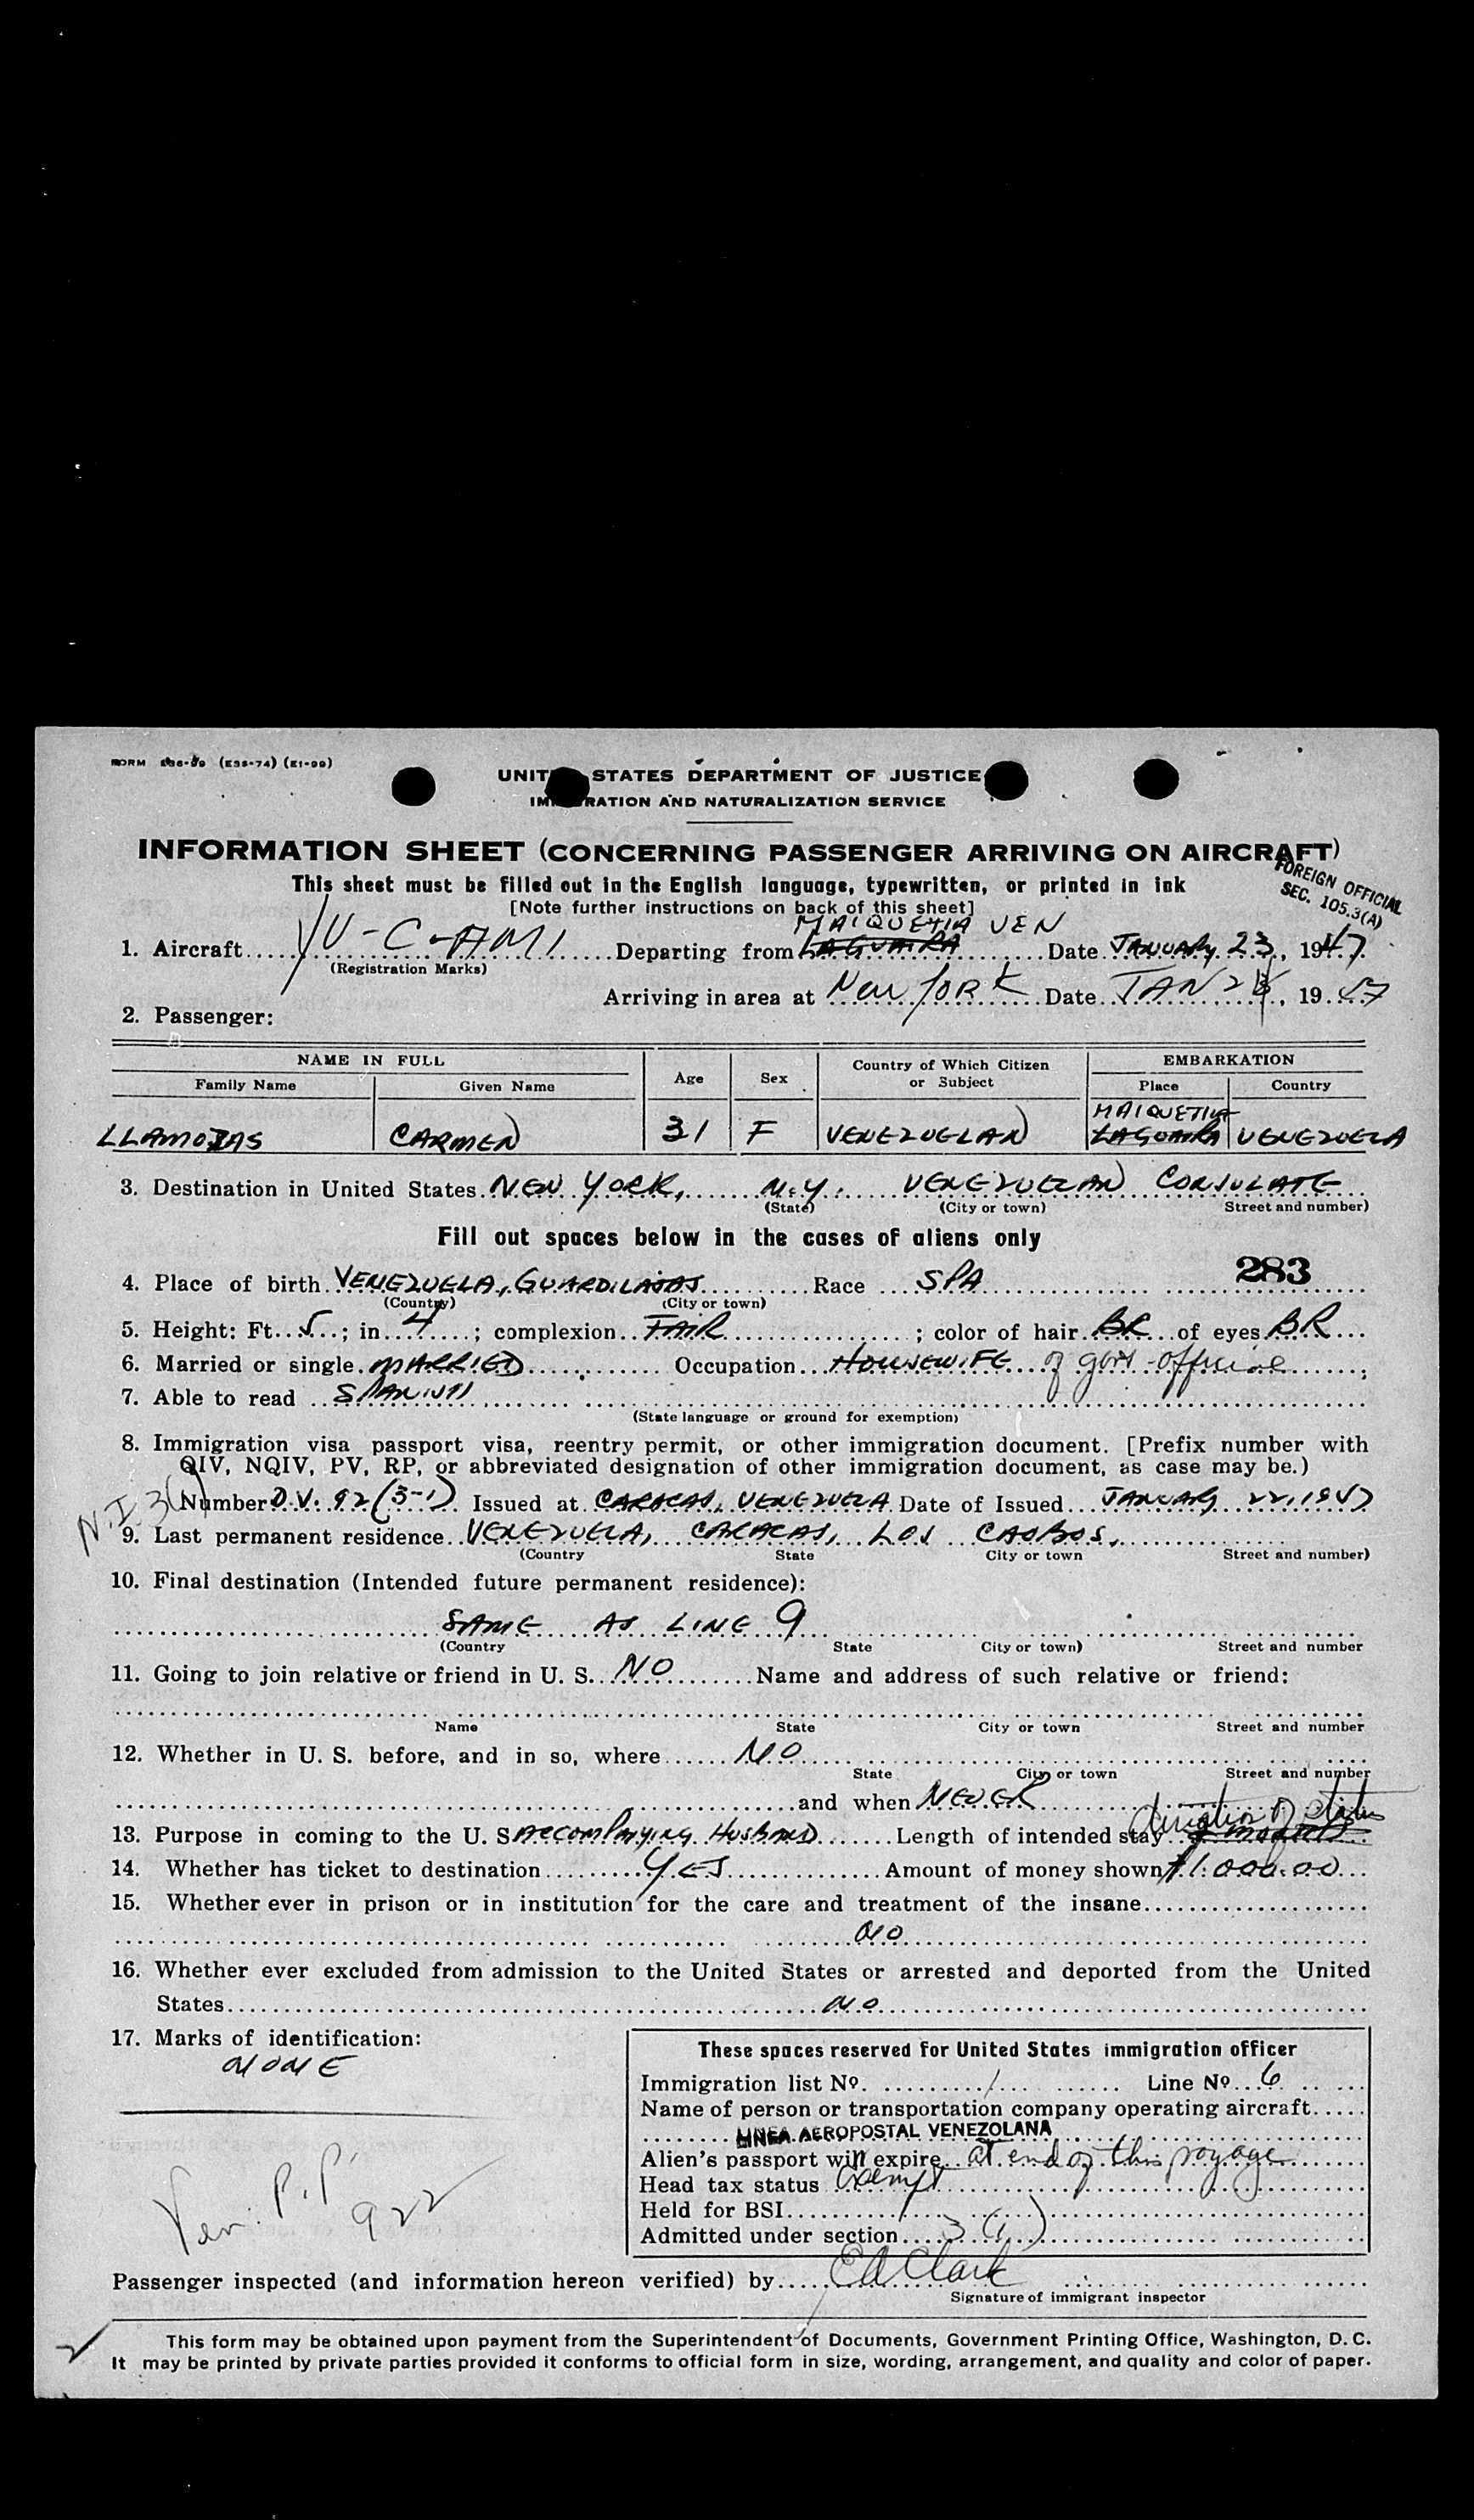 FORM (E3S-74) (E1-99)
UNIT STATES DEPARTMENT OF JUSTICE
IM RATION AND NATURALIZATION SERVICE
INFORMATION SHEET (CONCERNING PASSENGER ARRIVING ON AIRCRAFT)
This sheet must be filled out in the English language, typewritten, or printed in ink
[Note further instructions on back of this sheet]
FOREIGN OFFICIAL
SEC. 105.3(A)
MAIQUETIA VEN
1. Aircraft YV-C-AMI Departing from LAGUAIRA Date JANUARY 23, 1947
(Registration Marks)
Arriving in area at New York Date JAN 2 , 19 47
2. Passenger:
NAME IN FULL Age Sex Country of Which Citizen or Subject EMBARKATION
Family Name Given Name Place Country
MAIQUETIA
LLAMOZAS CARMEN 31 F VENEZUELAN LAGUAIRA VENEZUELA
3. Destination in United States NEW YORK, N.Y. VENEZUELAN CONSULATE
(State) (City or town) Street and number)
Fill out spaces below in the cases of aliens only
283
4. Place of birth VENEZUELA, GUARDILAJAS Race SPA
(Country) (City or town)
5. Height: Ft. 5; in. 4; complexion FAIR; color of hair BR of eyes BR
6. Married or single MARRIED Occupation HOUSEWIFE of govt official;
7. Able to read SPANISH
(State language or ground for exemption)
8. Immigration visa passport visa, reentry permit, or other immigration document. [Prefix number with
QIV, NQIV, PV, RP, or abbreviated designation of other immigration document, as case may be.)
N.I. 3(1)
Number D.V. 92 (3-1) Issued at CARACAS, VENEZUELA Date of Issued JANUARY 22, 1947
9. Last permanent residence VENEZUELA, CARACAS, LOS CAOBOS,
(Country State City or town Street and number)
10. Final destination (Intended future permanent residence):
SAME AS LINE 9
(Country State City or town) Street and number
11. Going to join relative or friend in U. S. NO Name and address of such relative or friend:
Name State City or town Street and number
12. Whether in U. S. before, and in so, where NO
State City or town Street and number
and when NEVER
duration of status
13. Purpose in coming to the U. S. ACCOMPANYING HUSBAND Length of intended stay
14. Whether has ticket to destination YES Amount of money shown $1.000.00
15. Whether ever in prison or in institution for the care and treatment of the insane
NO
16. Whether ever excluded from admission to the United States or arrested and deported from the United
States NO
17. Marks of identification:
NONE
Ven. P.P. 922
These spaces reserved for United States immigration officer
Immigration list No. 1 Line No. 6
Name of person or transportation company operating aircraft
LINEA AEROPOSTAL VENEZOLANA
Alien's passport will expire at end of this voyage
Head tax status Exempt
Held for BSI
Admitted under section 3 (1)
Passenger inspected (and information hereon verified) by EA Clark
Signature of immigrant inspector
This form may be obtained upon payment from the Superintendent of Documents, Government Printing Office, Washington, D. C.
It may be printed by private parties provided it conforms to official form in size, wording, arrangement, and quality and color of paper.